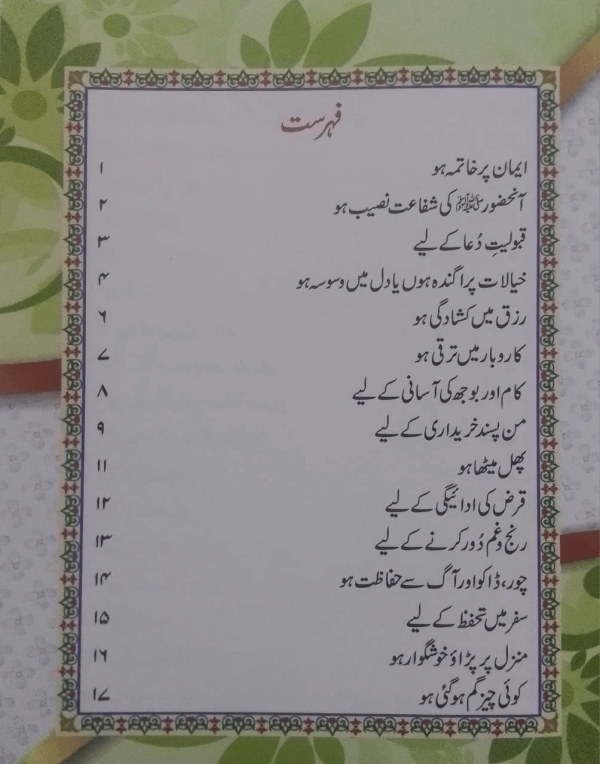 فہرست
ایمان پر خاتمہ ہو ۱
آنحضور ﷺ کی شفاعت نصیب ہو ۲
قبولیتِ دُعا کے لیے ۳
خیالات پراگندہ ہوں یا دل میں وسوسہ ہو ۴
رزق میں کشادگی ہو ۶
کاروبار میں ترقی ہو ۷
کام اور بوجھ کی آسانی کے لیے ۸
من پسند خریداری کے لیے ۹
پھل میٹھا ہو ۱۱
قرض کی ادائیگی کے لیے ۱۲
رنج و غم دُور کرنے کے لیے ۱۳
چور، ڈاکو اور آگ سے حفاظت ہو ۱۴
سفر میں تحفظ کے لیے ۱۵
منزل پر پڑاؤ خوشگوار ہو ۱۶
کوئی چیز گم ہوگئی ہو ۱۷